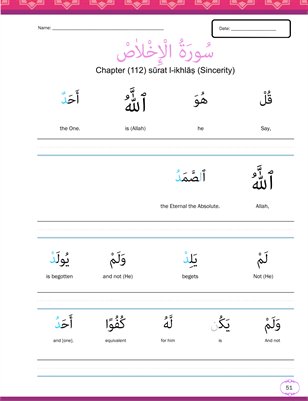 Name: ____________________ Date: ____________________
سُورَةُ الْإِخْلَاصْ
Chapter (112) sūrat l-ikhlāṣ (Sincerity)
قُلْ هُوَ ٱللَّهُ أَحَدٌ
the One. is (Allah) he Say,
ٱللَّهُ ٱلصَّمَدُ
the Eternal the Absolute. Allah,
لَمْ يَلِدْ وَلَمْ يُولَدْ
is begotten and not (He) begets Not (He)
وَلَمْ يَكُن لَّهُ كُفُوًا أَحَدٌ
and [one]. equivalent for him is And not
51